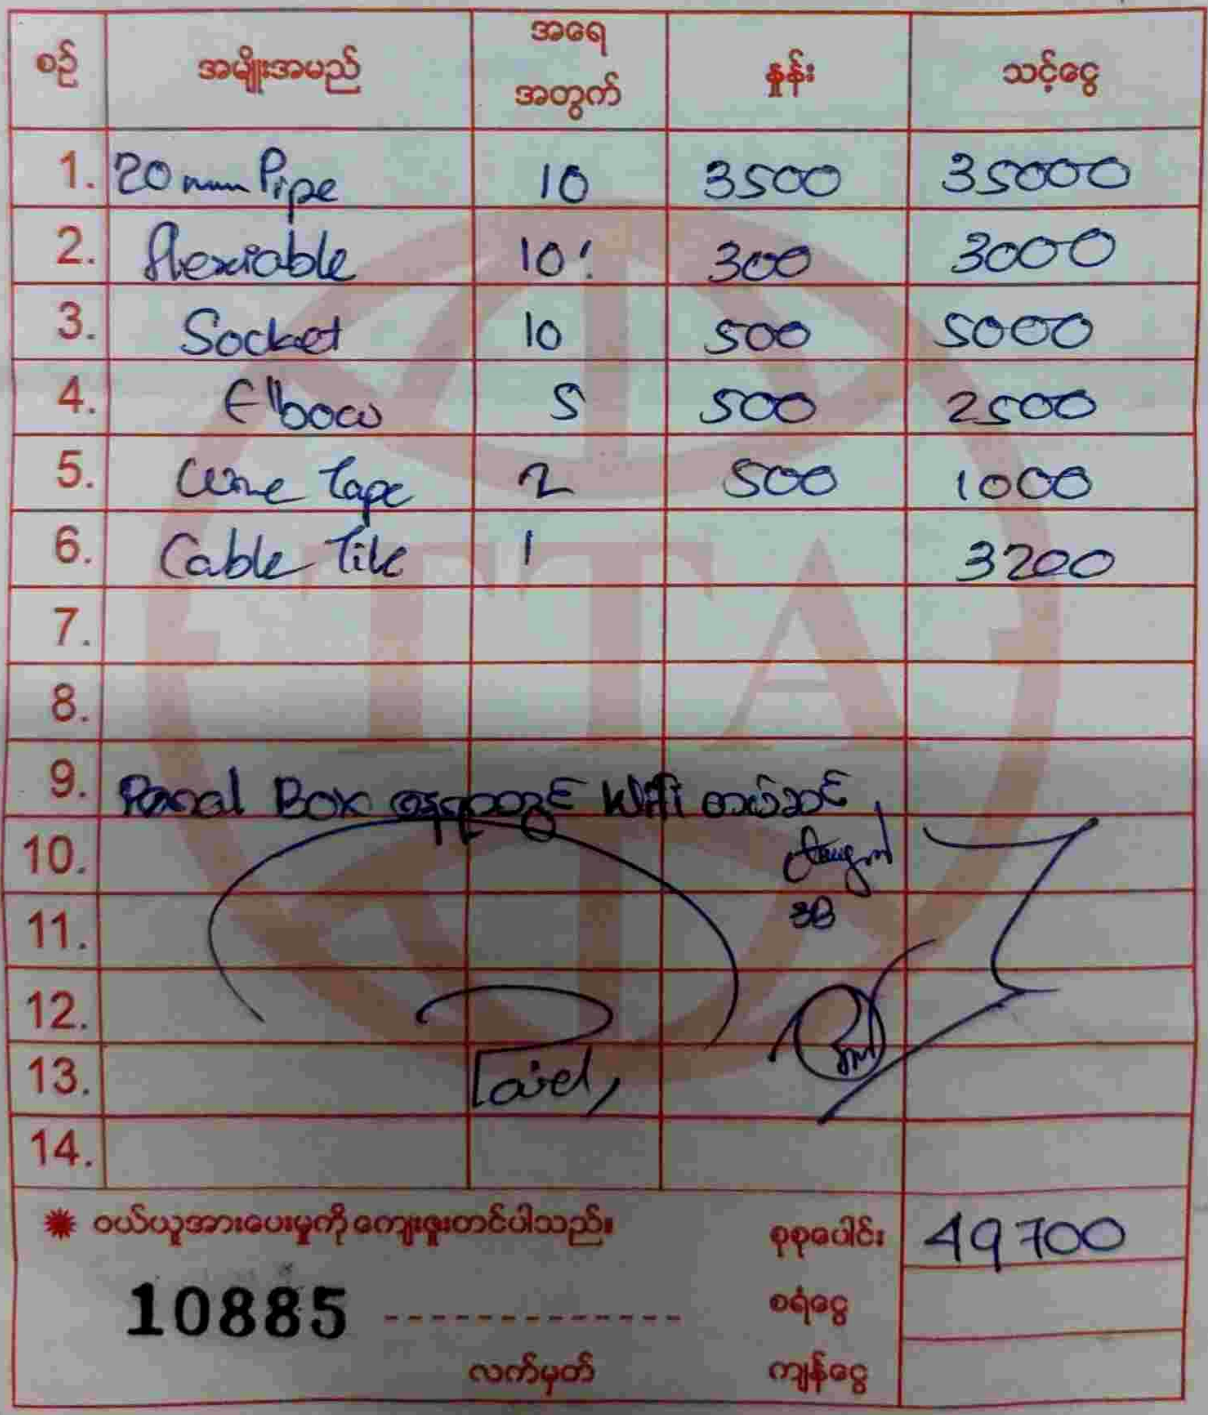 စဉ် အမျိုးအမည် အရေအတွက် နှုန်း သင့်ငွေ
1. 20 mm Pipe 10 3500 35000
2. flexiable 10' 300 3000
3. Socket 10 500 5000
4. Elbow 5 500 2500
5. Wire Tape 2 500 1000
6. Cable Tile 1 3200
7.
8.
9. Panal Box နေရာတွင် Wifi တပ်ဆင်
10.
11.
12.
13.
14.
ဝယ်ယူအားပေးမှုကို ကျေးဇူးတင်ပါသည်။ စုစုပေါင်း 49700
10885 စရံငွေ
လက်မှတ် ကျန်ငွေ
TTA